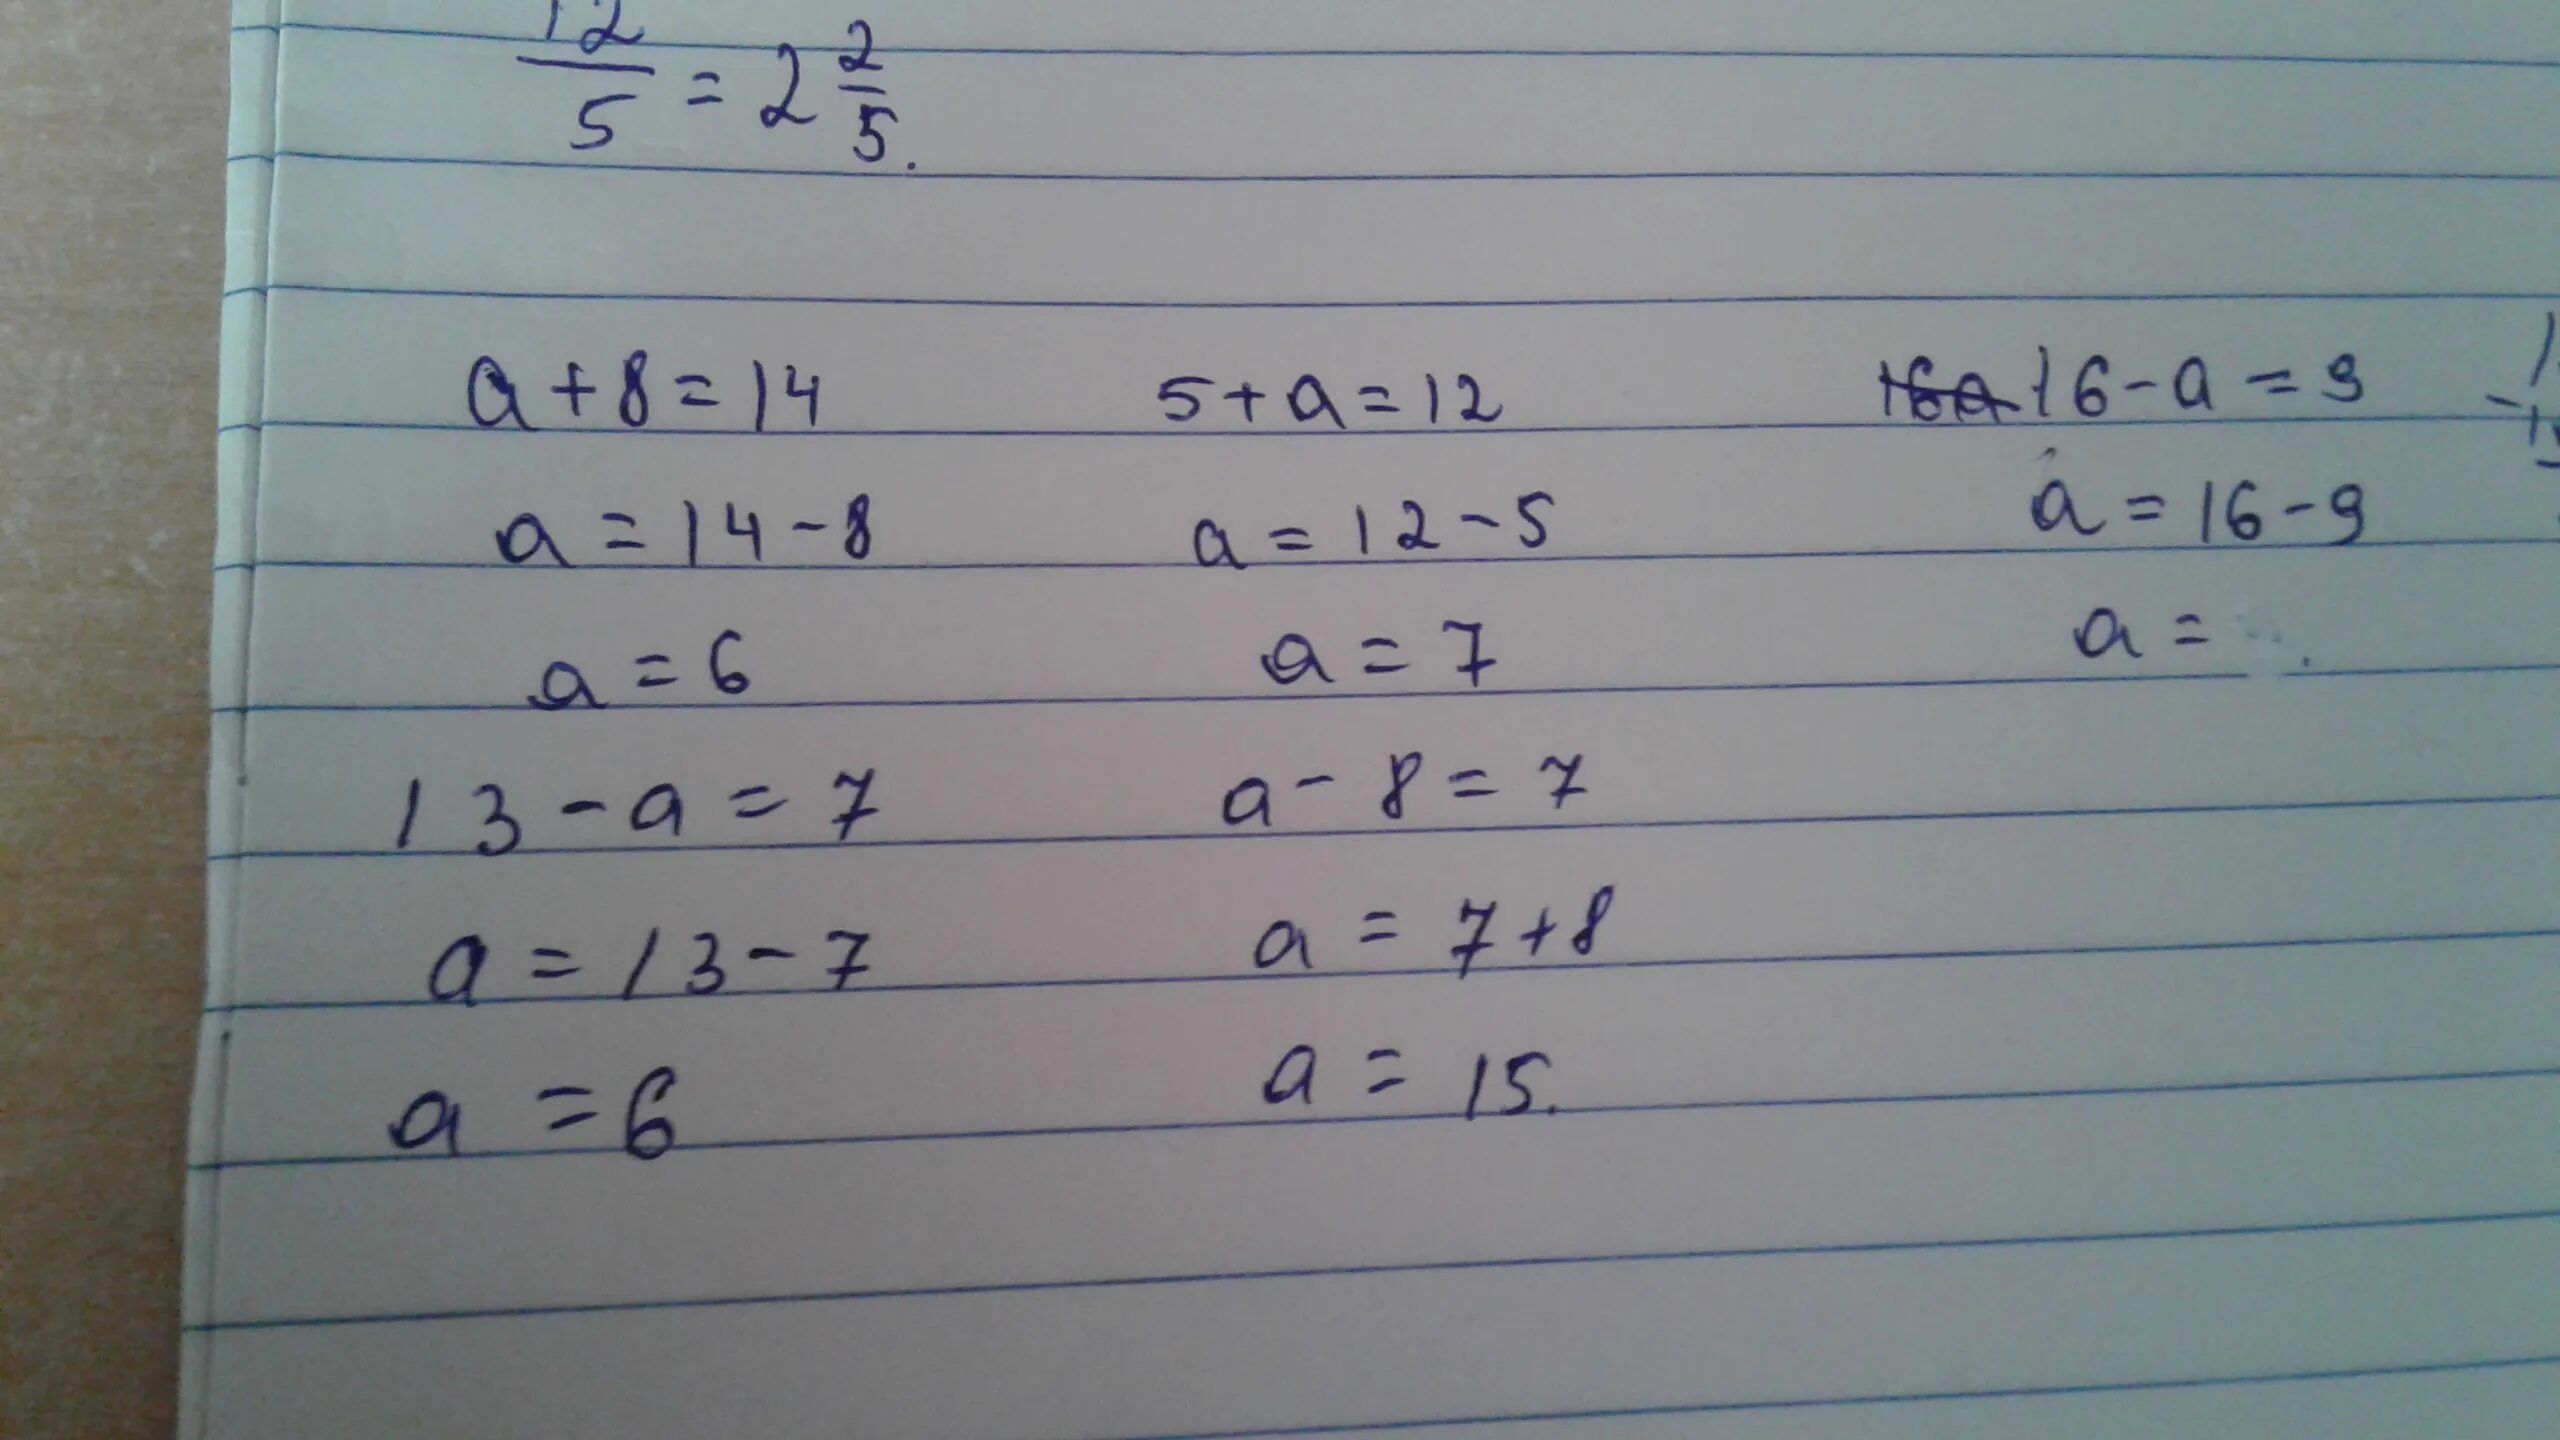 12/5 = 2 2/5.
a + 8 = 14
a = 14 - 8
a = 6
5 + a = 12
a = 12 - 5
a = 7
16 - a = 9
a = 16 - 9
a =
13 - a = 7
a = 13 - 7
a = 6
a - 8 = 7
a = 7 + 8
a = 15.